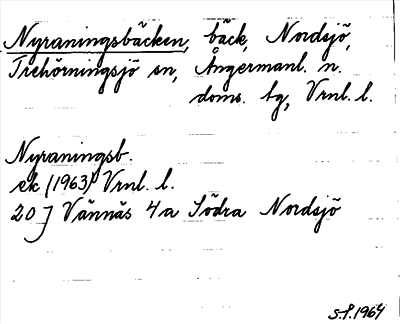 Nyraningsbäcken, bäck, Nordsjö,
Trehörningsjö sn, Ångermanl. n.
doms. tg, Vrnl. l.
Nyraningsb.
ek (1963) Vrnl. l.
20 J Vännäs 4a Södra Nordsjö
S.F. 1964